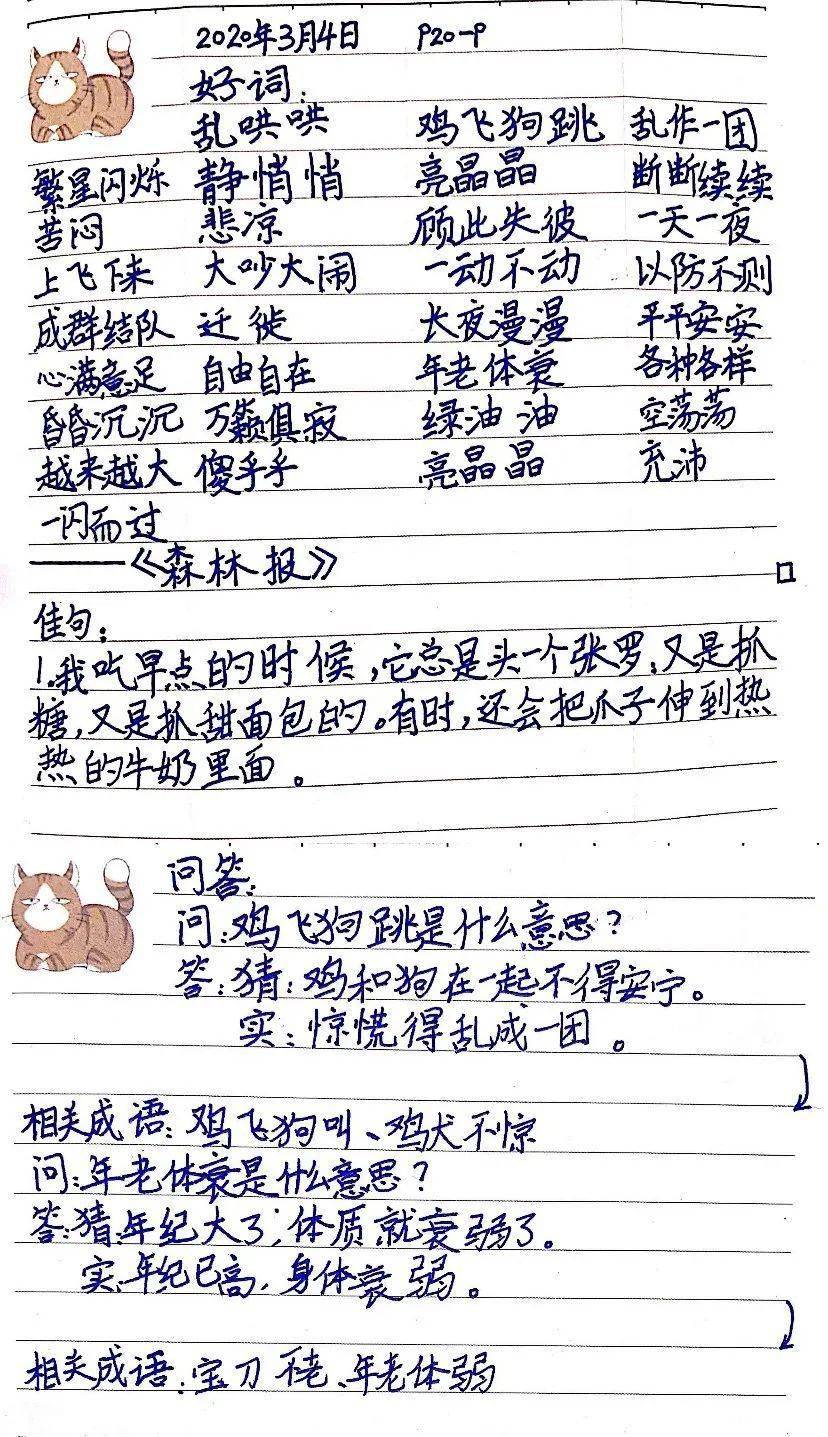 2020年3月4日 P20-P
好词:
乱哄哄 鸡飞狗跳 乱作一团
繁星闪烁 静悄悄 亮晶晶 断断续续
苦闷 悲凉 顾此失彼 一天一夜
上飞下来 大吵大闹 一动不动 以防不测
成群结队 迁徙 长夜漫漫 平平安安
心满意足 自由自在 年老体衰 各种各样
昏昏沉沉 万籁俱寂 绿油油 空荡荡
越来越大 傻乎乎 亮晶晶 充沛
一闪而过
——《森林报》
佳句:
1.我吃早点的时候,它总是头一个张罗,又是抓
糖,又是抓甜面包的。有时,还会把爪子伸到热
热的牛奶里面。
问答:
问:鸡飞狗跳是什么意思?
答:猜:鸡和狗在一起不得安宁。
实:惊慌得乱成一团。
相关成语:鸡飞狗叫、鸡犬不惊
问:年老体衰是什么意思?
答:猜:年纪大了,体质就衰弱了。
实:年纪已高,身体衰弱。
相关成语:宝刀不老、年老体弱